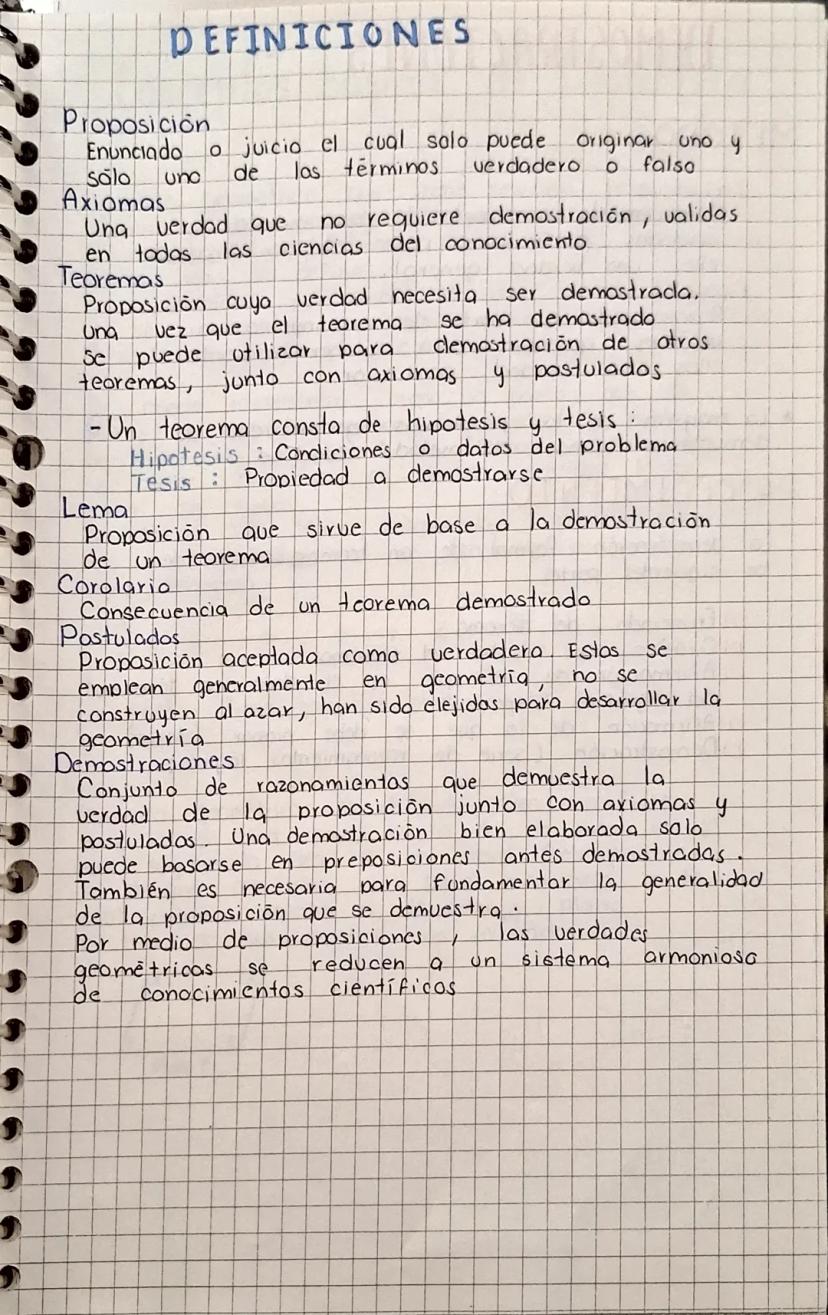 DEFINICIONES
Proposición
Enunciado o juicio el cual solo puede originar uno y
sólo uno de los términos verdadero o falso
Axiomas
Una verdad que no requiere demostración, validas
en todas las ciencias del conocimiento
Teoremas
Proposición cuya verdad necesita ser demostrada.
una vez que el teorema se ha demostrado
se puede utilizar para demostración de otros
teoremas, junto con axiomas y postulados
-Un teorema consta de hipotesis y tesis:
Hipotesis: Condiciones o datos del problema
Tesis: Propiedad a demostrarse
Lema
Proposición que sirve de base a la demostración
de un teorema
Corolario
Consecuencia de un teorema demostrado
Postulados
Proposición aceptada como verdadera. Estos se
emplean generalmente en geometría, no se
construyen al azar, han sido elejidas para desarrollar la
geometría
Demostraciones
Conjunto de razonamientos que demuestra la
verdad de la proposición junto con axiomas y
postulados. Una demostración bien elaborada solo
puede basarse en preposiciones antes demostradas.
También es necesaria para fundamentar la generalidad
de la proposición que se demuestra.
Por medio de proposiciones, las verdades
geométricas se reducen a un sistema armonioso
de conocimientos científicos